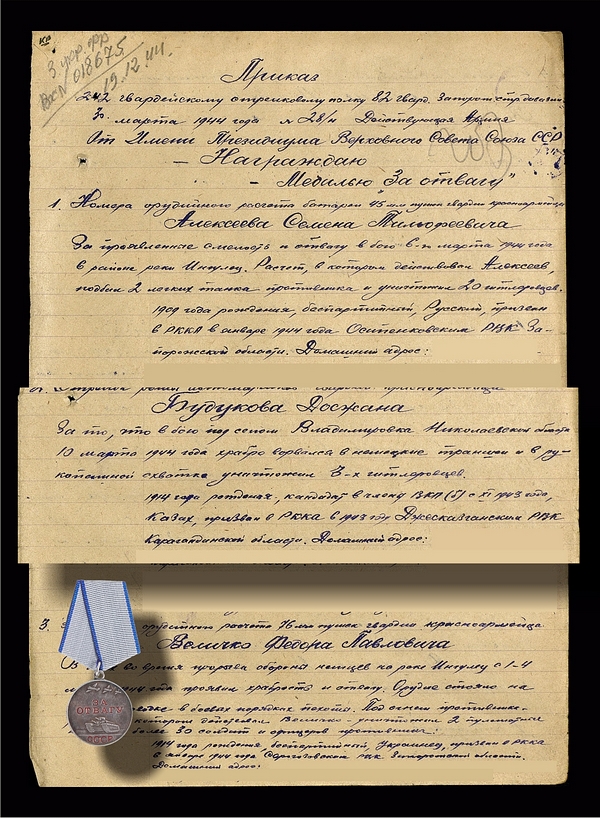 КР
3 укр. фр
Вх N 018675
19.12.44.
Приказ
242 гвардейскому стрелковому полку 82 гвард.
марта 1944 года N 28/н Действующая Армия
От Имени Президиума Верховного Совета Союза ССР
— Награждаю
— Медалью За отвагу"
1. Номера орудийного расчета батареи 45 мм пушек гвардии красноармейца
Алексеева Семена Тимофеевича
За проявленные смелость и отвагу в бою 6-го марта 1944 года
в районе реки Ингулец. Расчет, в котором действовал Алексеев,
подбил 2 легких танка противника и уничтожил 20 гитлеровцев.
1909 года рождения, беспартийный, Русский, призван
в РККА в январе 1944 года Осипенковским РВК За-
порожской области. Домашний адрес:
роты автоматчиков гвардии красноармейца
Будукова Досжана
За то, что в бою под селом Владимировка Николаевской области
10 марта 1944 года храбро ворвался в немецкие траншеи и в ру-
копашной схватке уничтожил 3-х гитлеровцев.
1914 года рождения, кандидат в члены ВКП(б) с XI 1943 года,
Казах, призван в РККА в 1943 году Джезказганским РВК
Карагандинской области. Домашний адрес:
3. орудийного расчета 76 мм пушек гвардии красноармейца
Величко Федора Павловича
В во время прорыва обороны немцев на реке Ингулец с 1-4
года проявил храбрость и отвагу. Орудие стояло на
в боевых порядках пехоты. Под огнем противника
котором действовал Величко - уничтожил 2 пулемета
более 30 солдат и офицеров противника:
1914 года рождения беспартийный, Украинец, призван в РККА
в январе 1944 года РВК Запорожской области.
Домашний адрес:
ЗА
ОТВАГУ
СССР